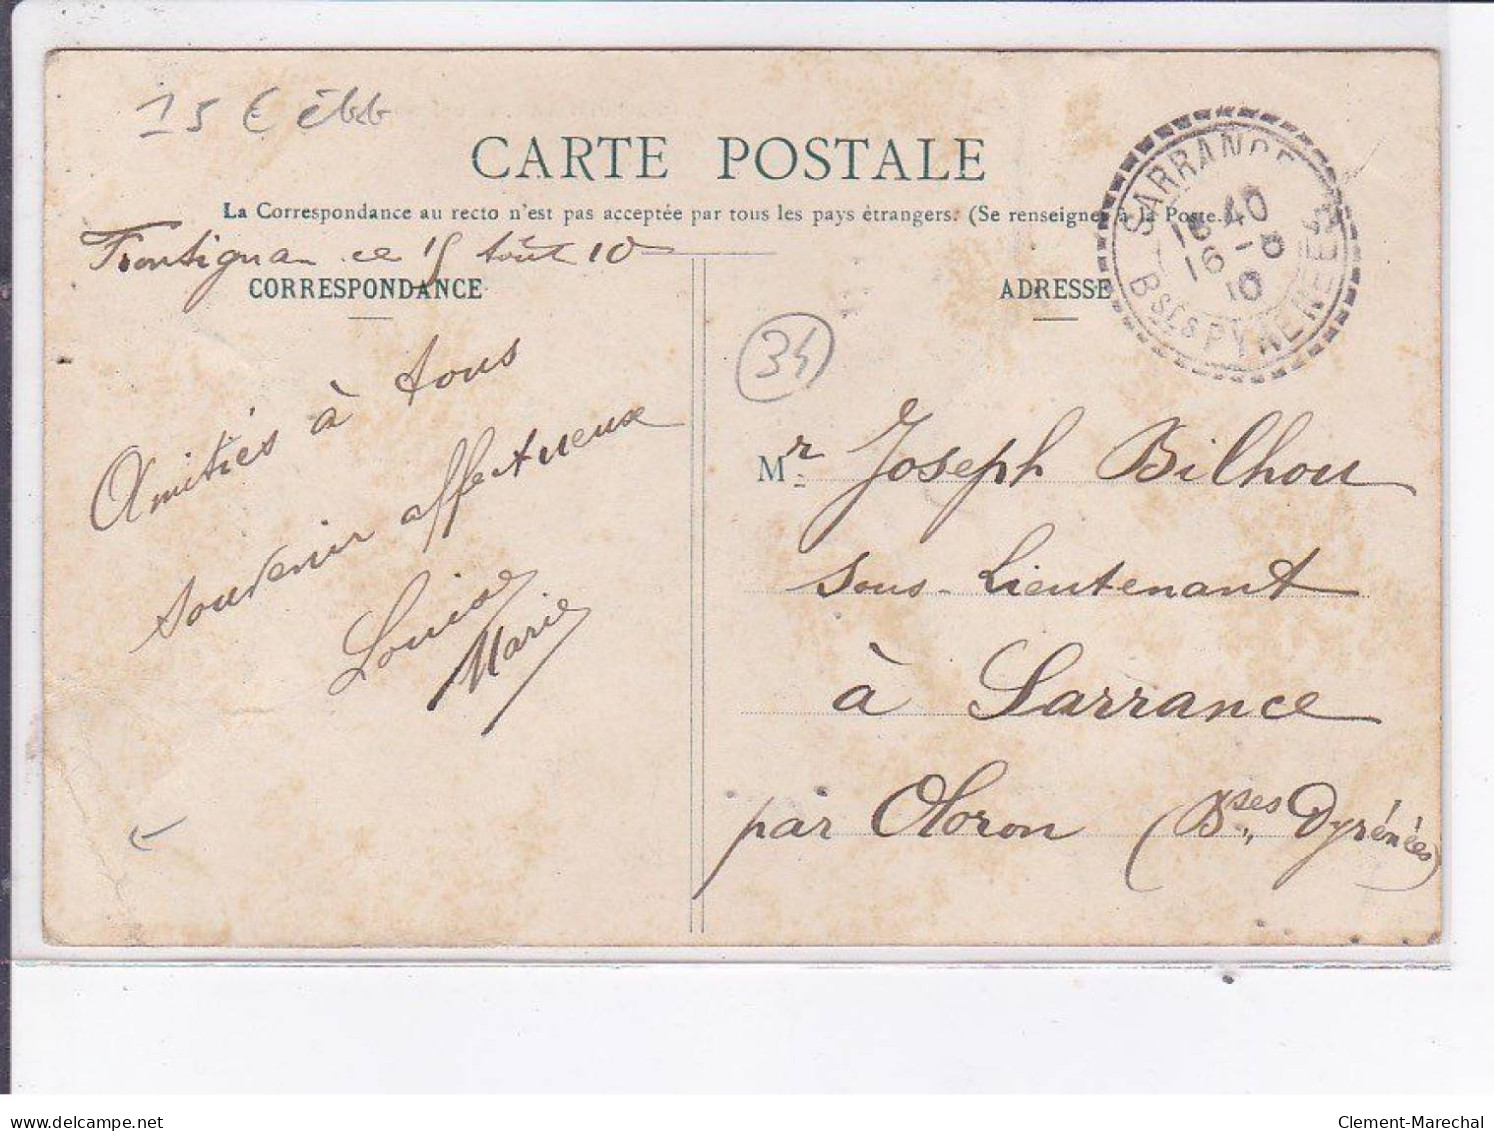 15 €
CARTE POSTALE
La Correspondance au recto n'est pas acceptée par tous les pays étrangers. (Se renseigner à la Poste.)
Frontignan ce 15 Août 10
CORRESPONDANCE
Amitiés à tous
souvenir affectueux
Louise
Marie
ADRESSE
SARRANCE
16 40
16 - 8
10
Bses PYRENEES
34
Mr Joseph Bilhou
sous-Lieutenant
à Sarrance
par Oloron (Bses Pyrénées)
delcampe.net
Clement-Marechal